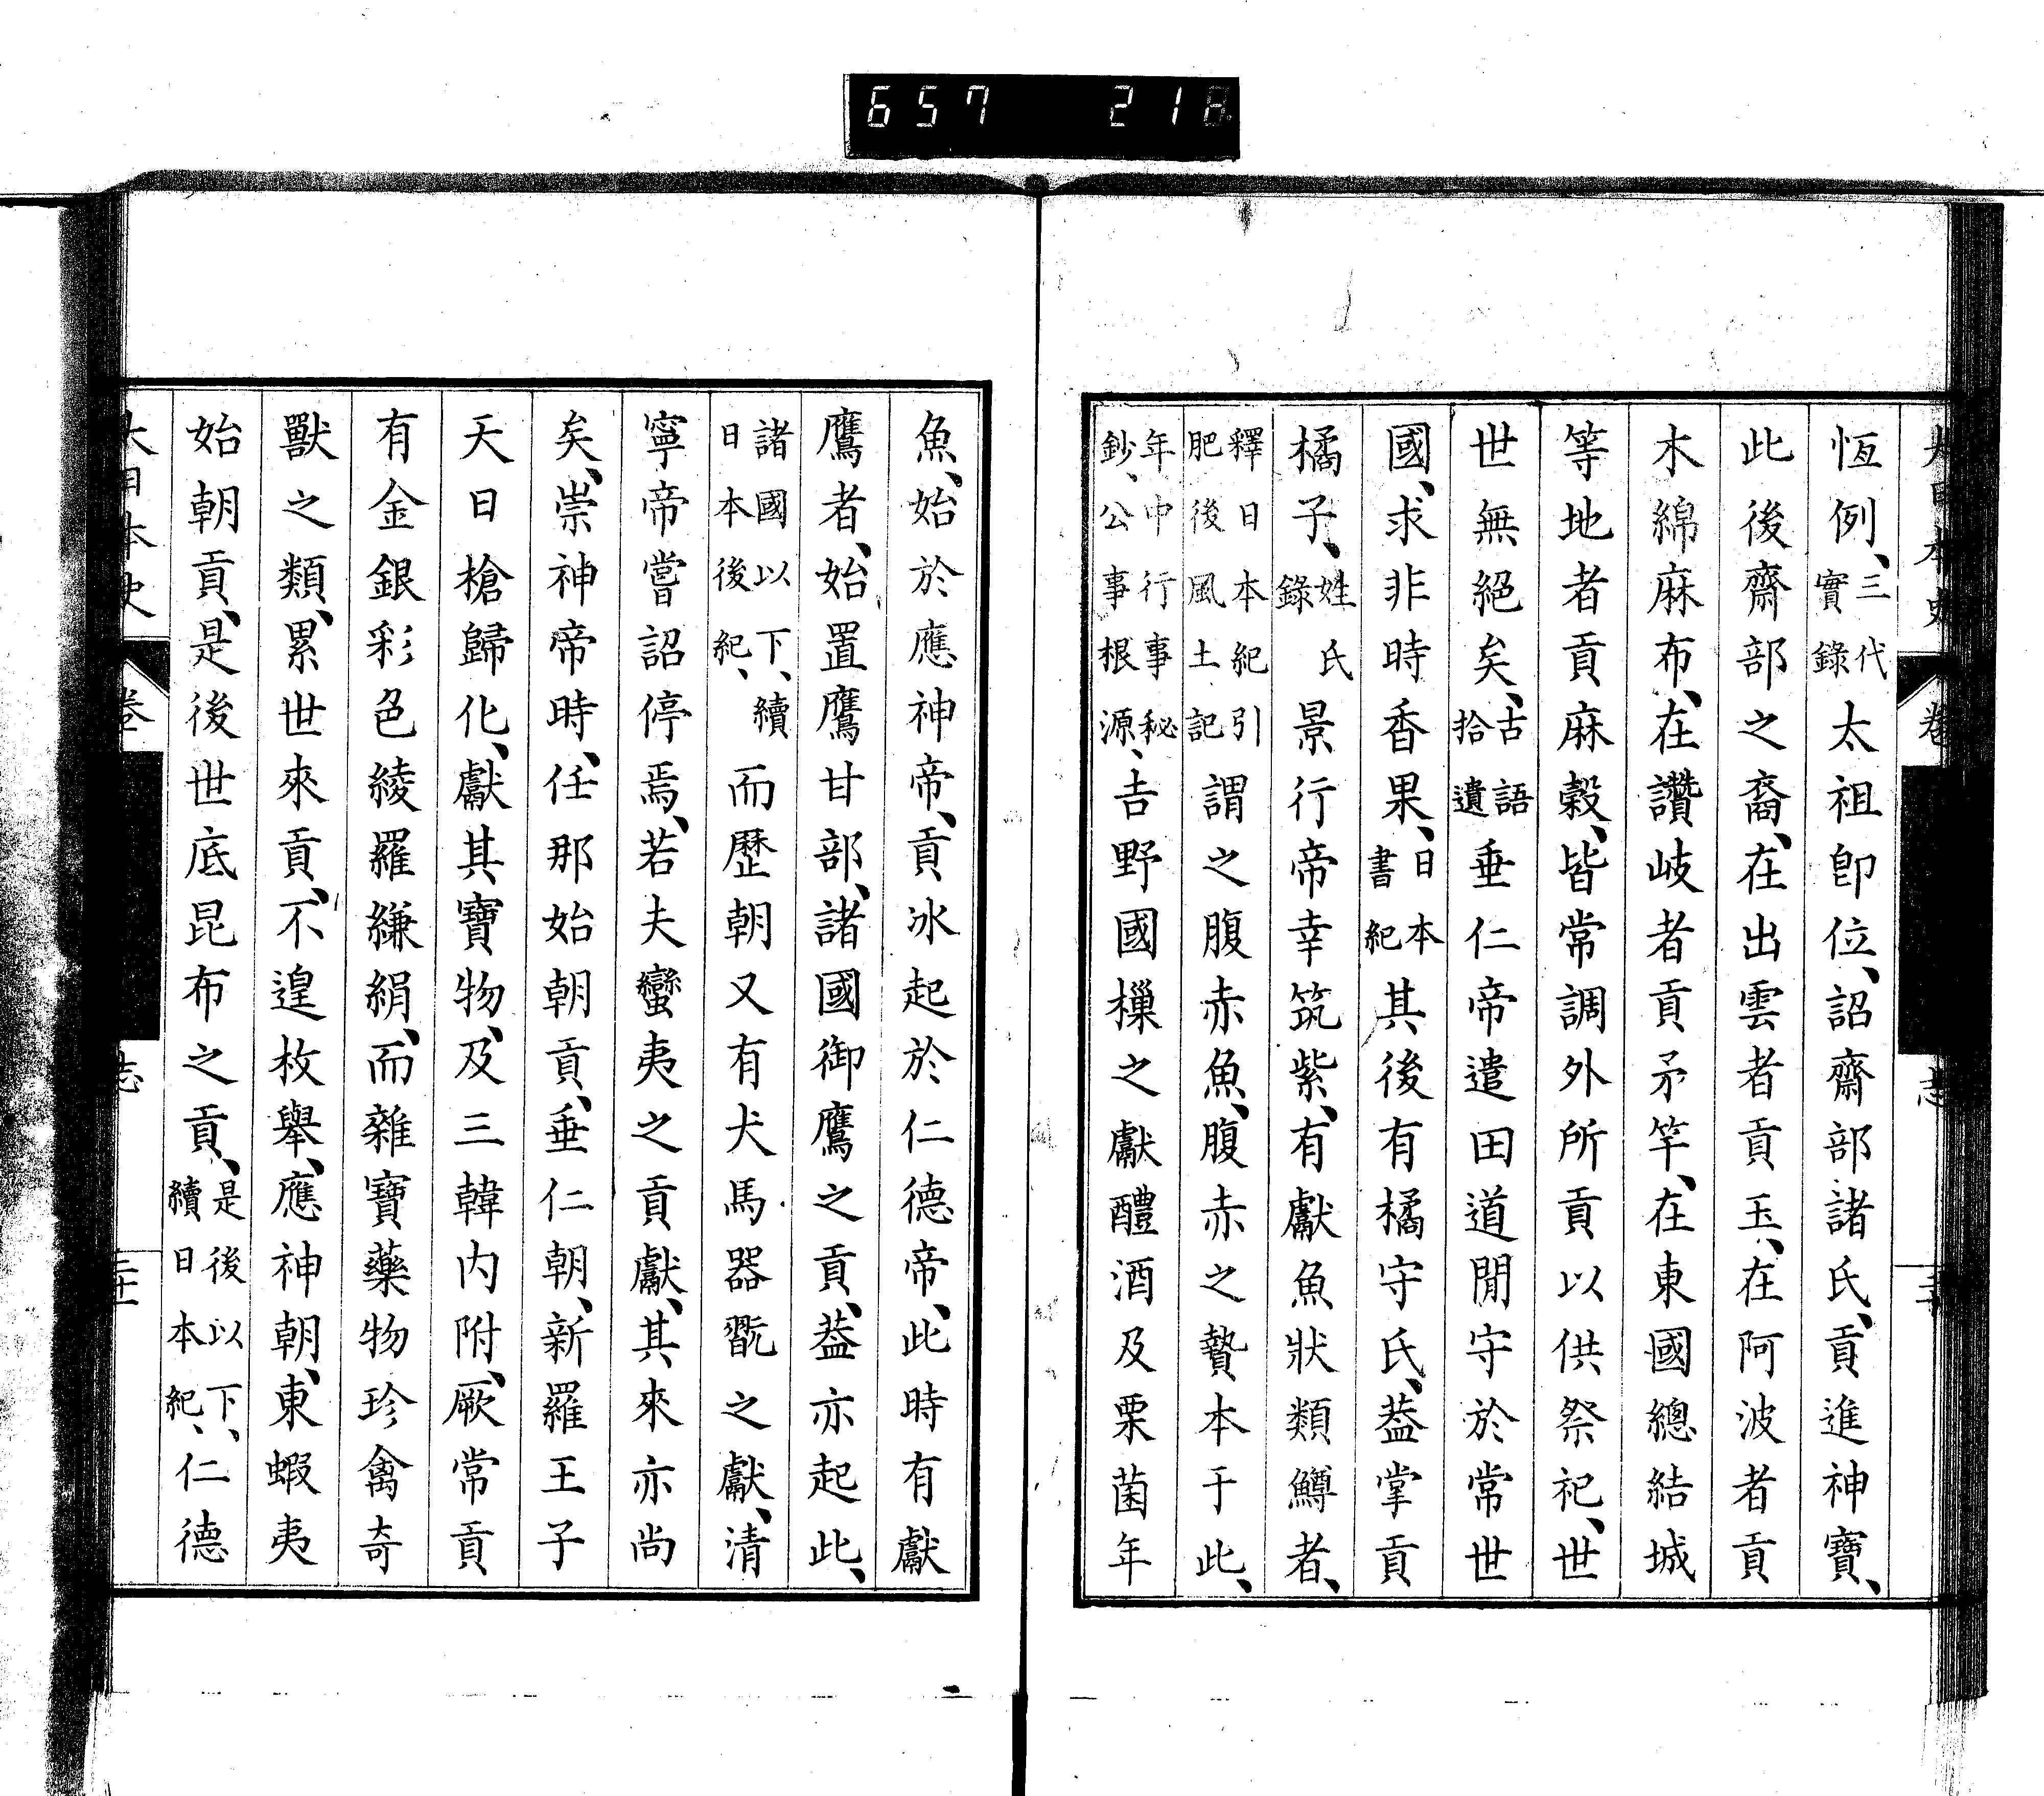 657 218
恆例、三代實錄太祖卽位、詔齋部諸氏、貢進神寶、
此後齋部之裔、在出雲者貢玉、在阿波者貢
木綿麻布、在讚岐者貢矛竿、在東國總結城
等地者貢麻穀、皆常調外所貢以供祭祀、世
世無絕矣、古語拾遺垂仁帝遣田道閒守於常世
國、求非時香果、日本書紀其後有橘守氏、葢掌貢
橘子、姓氏錄景行帝幸筑紫、有獻魚狀類鱒者、
釋日本紀引肥後風土記謂之腹赤魚、腹赤之贄本于此、
年中行事秘鈔、公事根源、吉野國樔之獻醴酒及栗菌年
魚、始於應神帝、貢冰起於仁德帝、此時有獻
鷹者、始置鷹甘部、諸國御鷹之貢、葢亦起此、
諸國以下、續日本後紀、而歷朝又有犬馬器翫之獻、清
寧帝嘗詔停焉、若夫蠻夷之貢獻、其來亦尚
矣、崇神帝時、任那始朝貢、垂仁朝、新羅王子
天日槍歸化、獻其寶物、及三韓內附、厥常貢
有金銀彩色綾羅縑絹、而雜寶藥物珍禽奇
獸之類、累世來貢、不遑枚舉、應神朝、東蝦夷
始朝貢、是後世底昆布之貢、是後以下、續日本紀、仁德
大日本史 卷 志